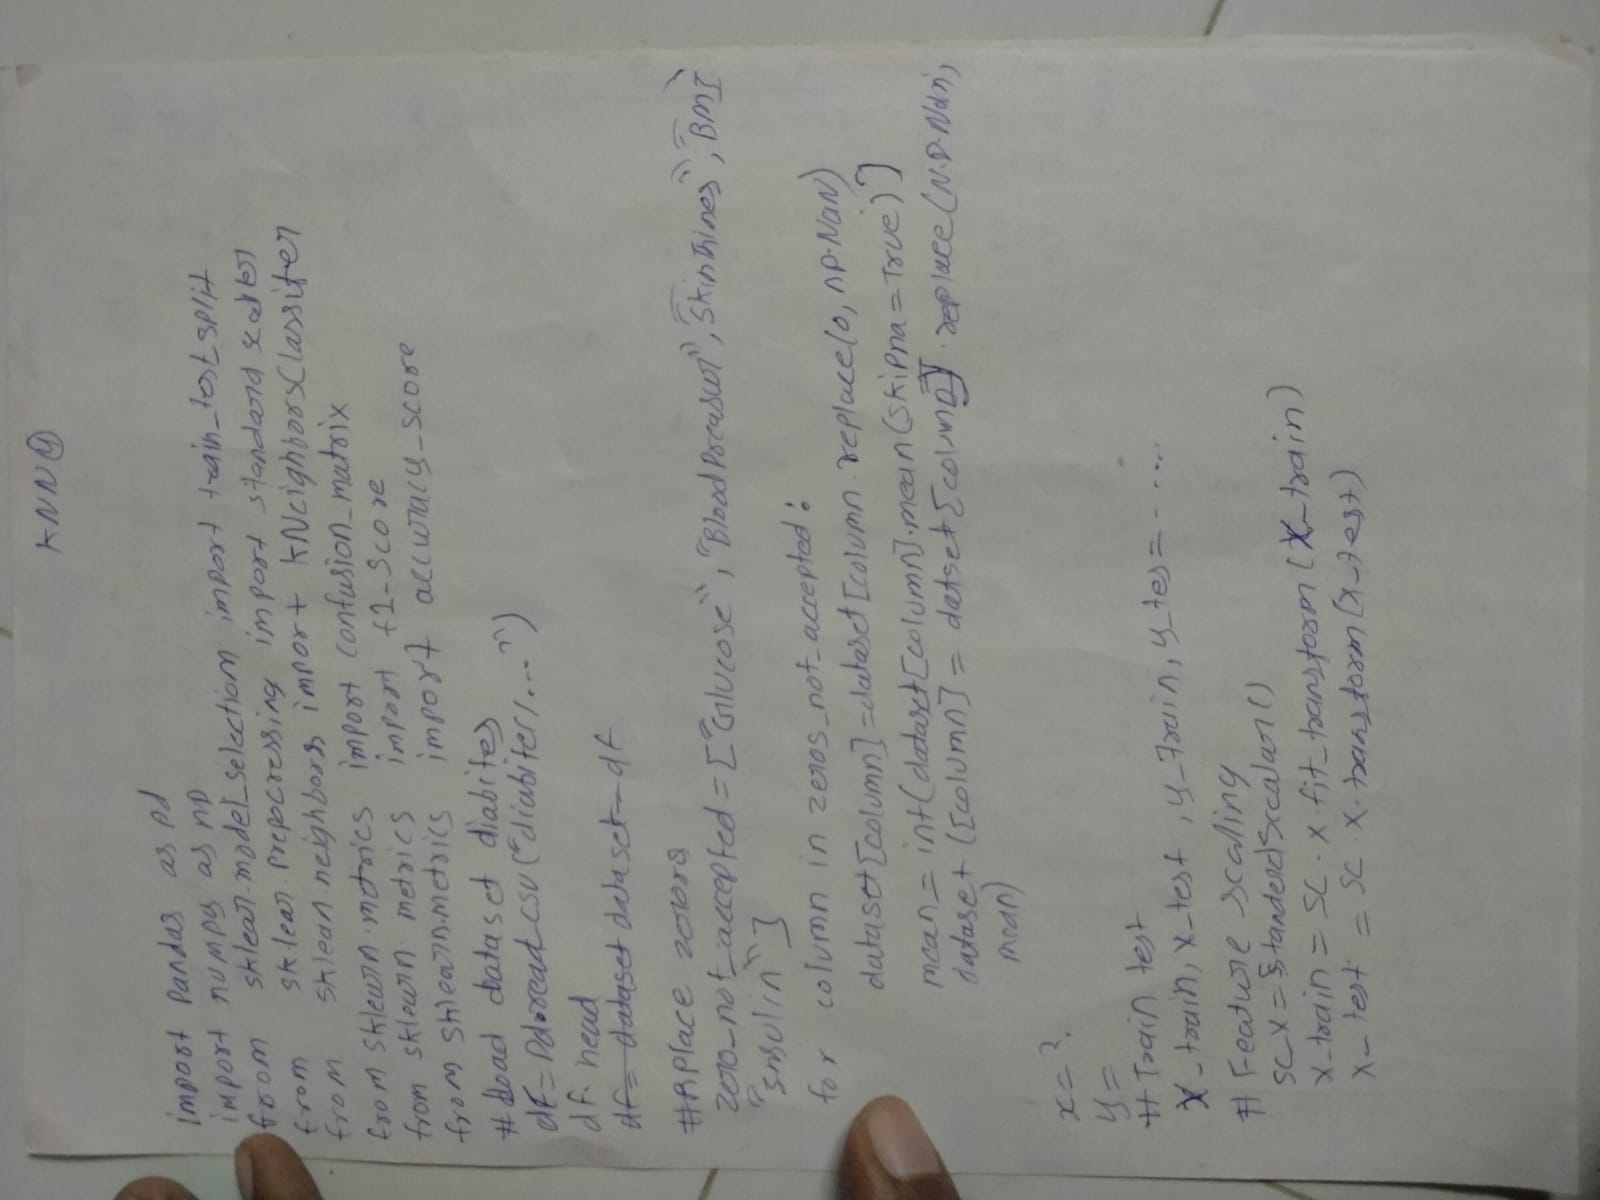 KNN 4
import pandas as pd
import numpy as np
from sklear.model_selection import train_test_split
from sklear.Prepocressing import standard scaler
from sklean.neighbors import KNeighborsClassifer
from sklearn.metrics import confusion_matrix
from sklearn metrics import f1-score
from sklearn.metrics import accuracy_score
# load dataset diabites
df = Pd.read_csv("diabites/....")
df. head
df= dataset dataset=df
#Rplace zeros
zero_not_accepted = ["Glucose", "BloodPreasur", "SkinThines", "BMI
"Insulin"]
for column in zeros_not_accepted:
dataset[column] = dataset[column.replace(0, np.NaN)
mean = int(dataset[column].mean(skipna=True))
dataset ([column] = datset[column] .replace(N.P.NaN,
mean)
x = ?
y =
# Train test
X_train, X_test, y_train, y_tes = - ....
# Feature scaling
sc_X = StanderdSccalar()
X_train = SC.X.fit_transform(X_train)
X_test = SC.X.transform(X_test)